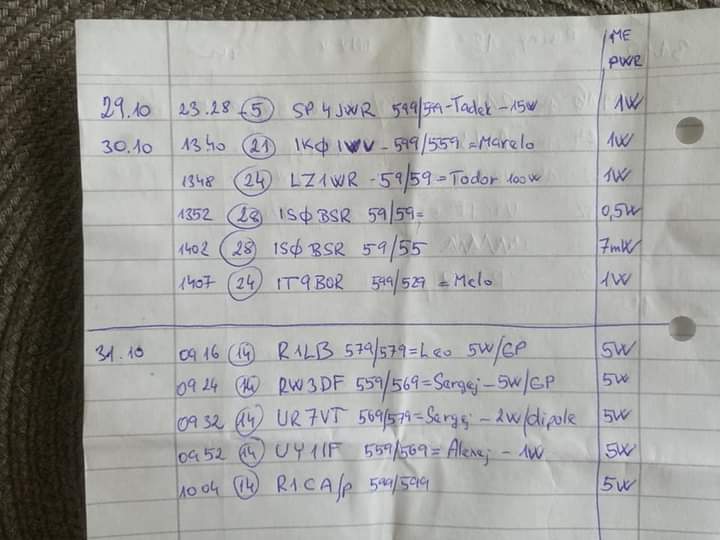 ME
PWR
29.10 23.28 - 5 SP4JWR 599/599-Tadek-15W 1W
30.10 1340 21 IKØIWV - 599/559 = Marelo 1W
1348 24 LZ1WR - 59/59 = Todor 100W 1W
1352 28 ISØBSR 59/59= 0,5W
1402 28 ISØBSR 59/55 7mW
1407 24 IT9BOR 599/529 = Melo 1W
31.10 0916 14 R1LB 579/579=Leo 5W/GP 5W
0924 14 RW3DF 559/569=Sergej-5W/GP 5W
0932 14 UR7VT 569/579=Sergej-2W/dipole 5W
0952 14 UY1IF 559/569= Alexej - 1W 5W
1004 14 R1CA/p 599/599 5W